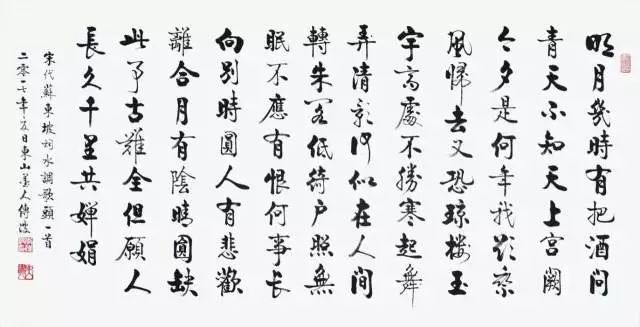 明月幾時有把酒問
青天不知天上宮闕
今夕是何年我欲乘
風歸去又恐瓊樓玉
宇高處不勝寒起舞
弄清影何似在人間
轉朱閣低綺戶照無
眠不應有恨何事長
向別時圓人有悲歡
離合月有陰晴圓缺
此事古難全但願人
長久千里共嬋娟
宋代蘇東坡詞水調歌頭一首
二零一七年五日東山墨人